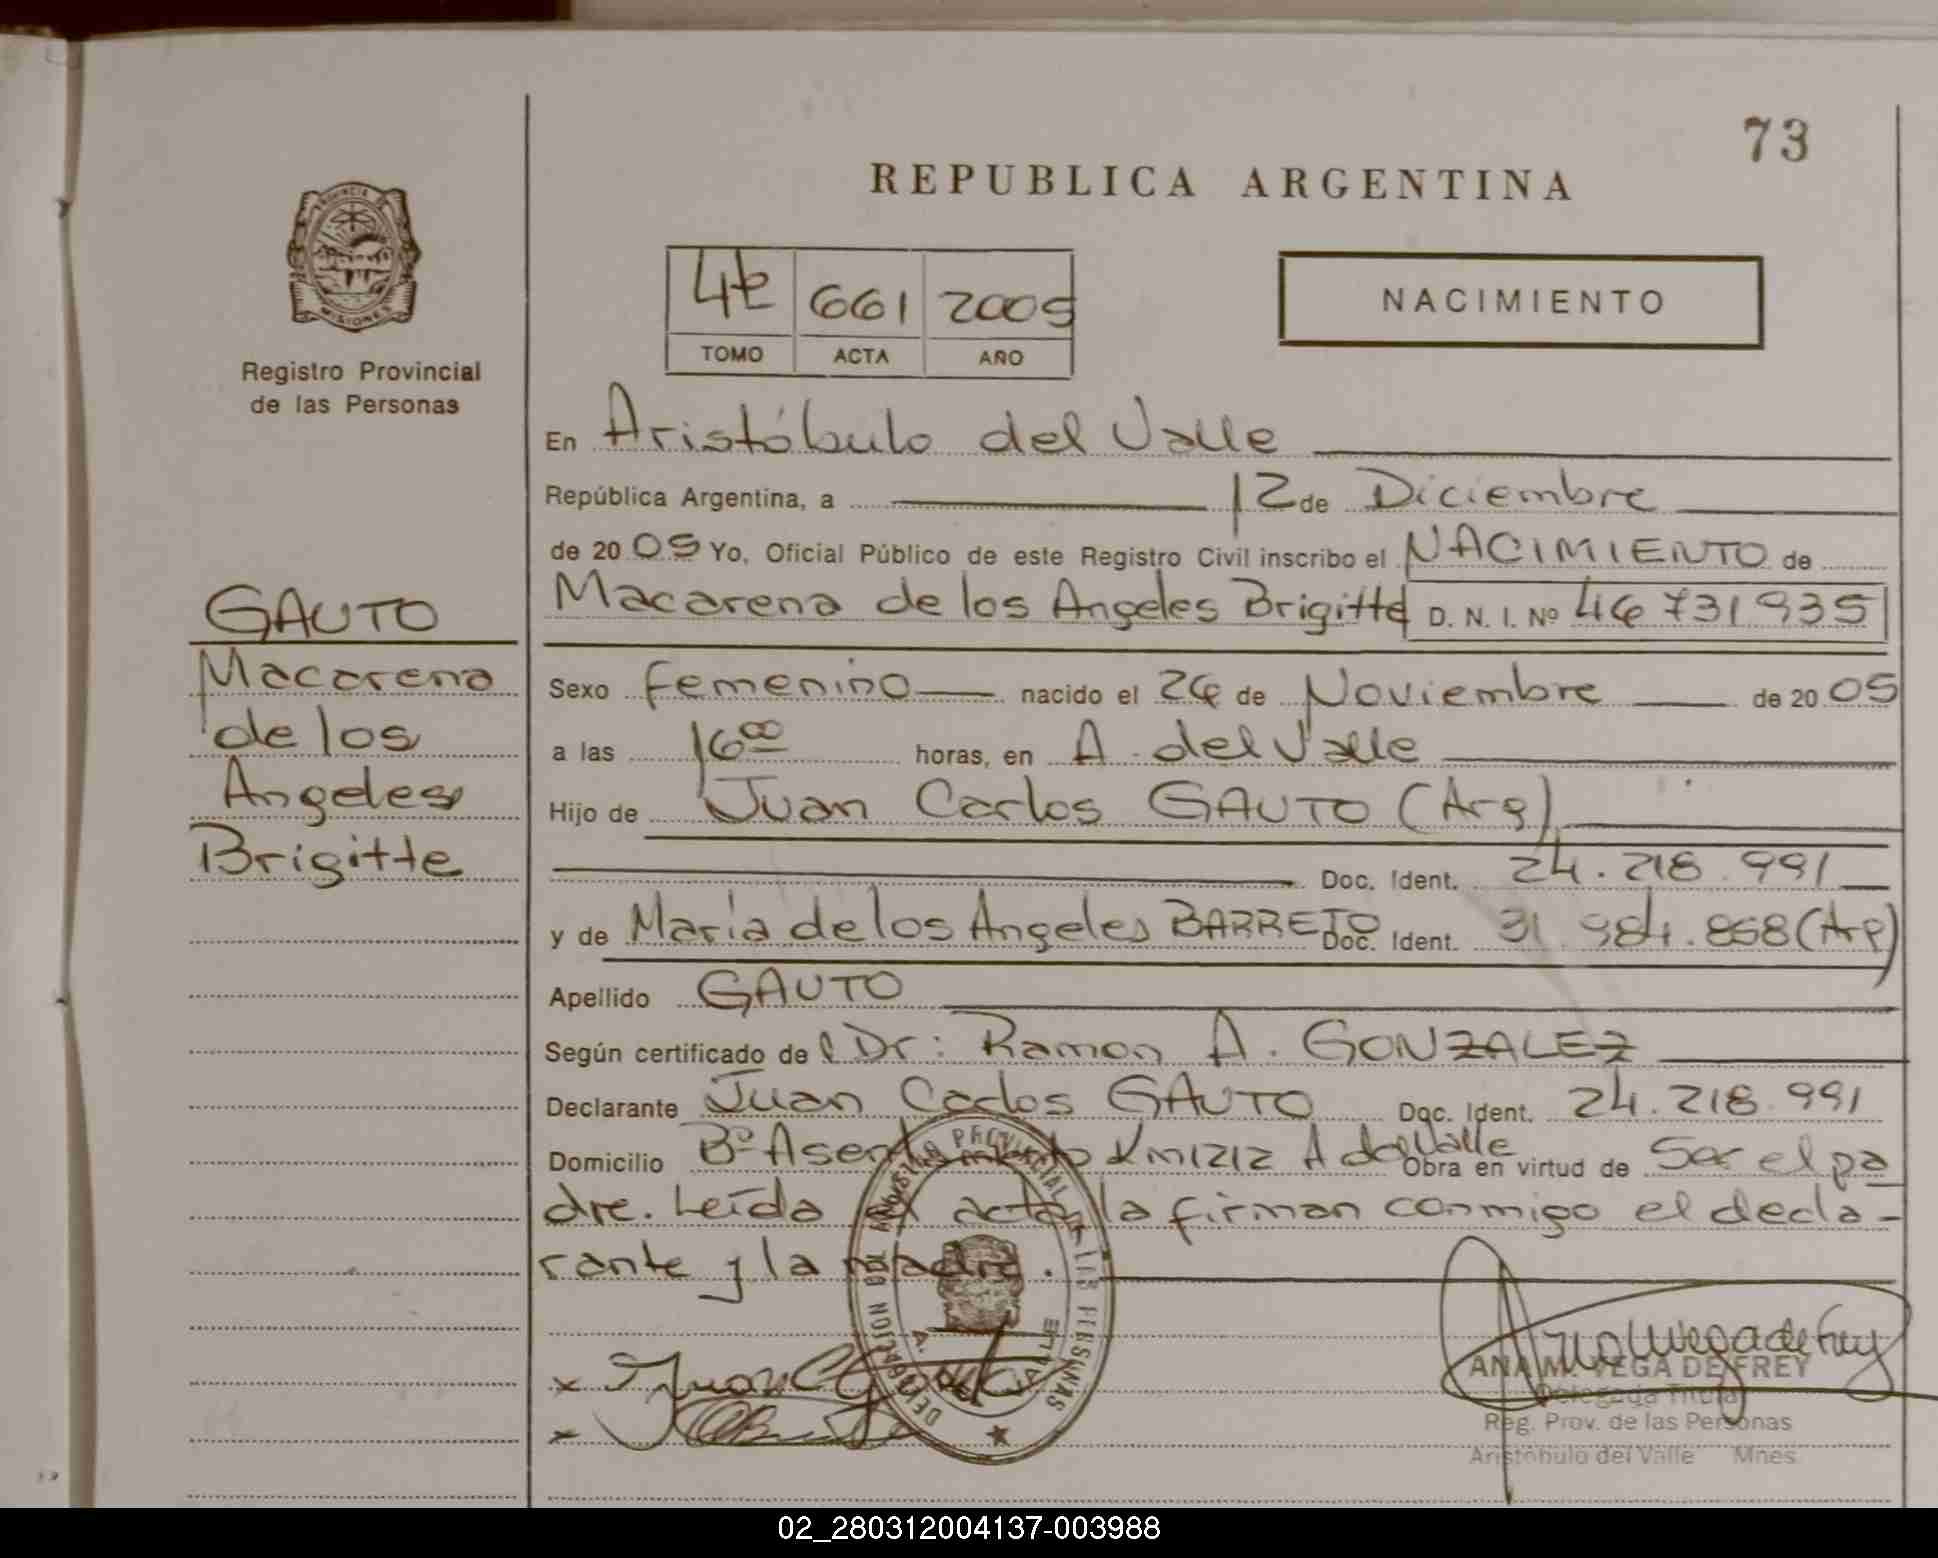 73
REPUBLICA ARGENTINA
PROVINCIA
MISIONES
Registro Provincial
de las Personas
661 2005
TOMO ACTA AÑO
NACIMIENTO
En Aristóbulo del Valle
República Argentina, a 12 de Diciembre
de 20 05 Yo, Oficial Público de este Registro Civil inscribo el NACIMIENTO de
Macarena de los Angeles Brigitte D. N. I. Nº 46 731935
GAUTO
Macarena
de los
Angeles
Brigitte
Sexo femenino nacido el 24 de Noviembre de 20 05
a las 16 00 horas, en A. del Valle
Hijo de Juan Carlos GAUTO (Arg)
Doc. Ident. 24.218.991
y de María de los Angeles BARRETO Doc. Ident. 31.984.868 (Arg)
Apellido GAUTO
Según certificado de el Dr: Ramon A. GONZALEZ
Declarante Juan Carlos GAUTO Doc. Ident. 24.218.991
Domicilio Bº Asentamiento Km 1212 A del Valle Obra en virtud de Ser el pa
dre. Leída el acta, la firman conmigo el decla-
rante y la madre.
ANA M. VEGA DE FREY
Delegada Titular
Reg. Prov. de las Personas
Aristóbulo del Valle Mnes.
02_280312004137-003988